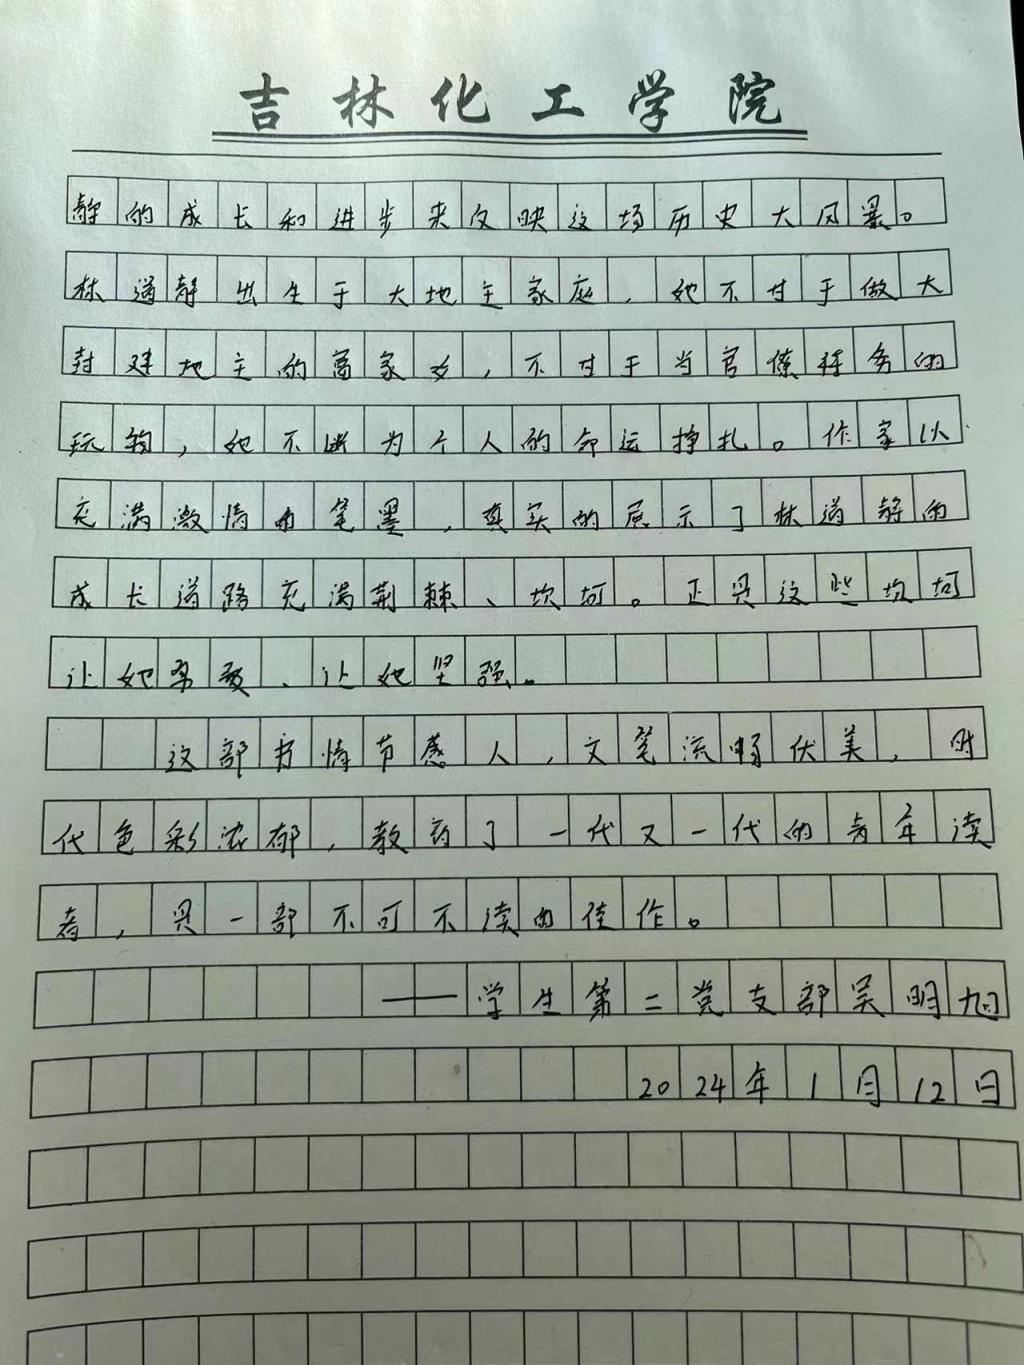 吉林化工学院
静的成长和进步来反映这场历史大风暴。
林道静出生于大地主家庭，她不甘于做大
封建地主的富家女，不甘于当官僚特务的
玩物，她不断为个人的命运挣扎。作家以
充满激情的笔墨，真实的展示了林道静的
成长道路充满荆棘、坎坷。正是这些坎坷
让她勇敢、让她坚强。
这部书情节感人，文笔流畅优美，时
代色彩浓郁，教育了一代又一代的青年读
者，是一部不可不读的佳作。
——学生第二党支部吴明旭
2024年1月12日